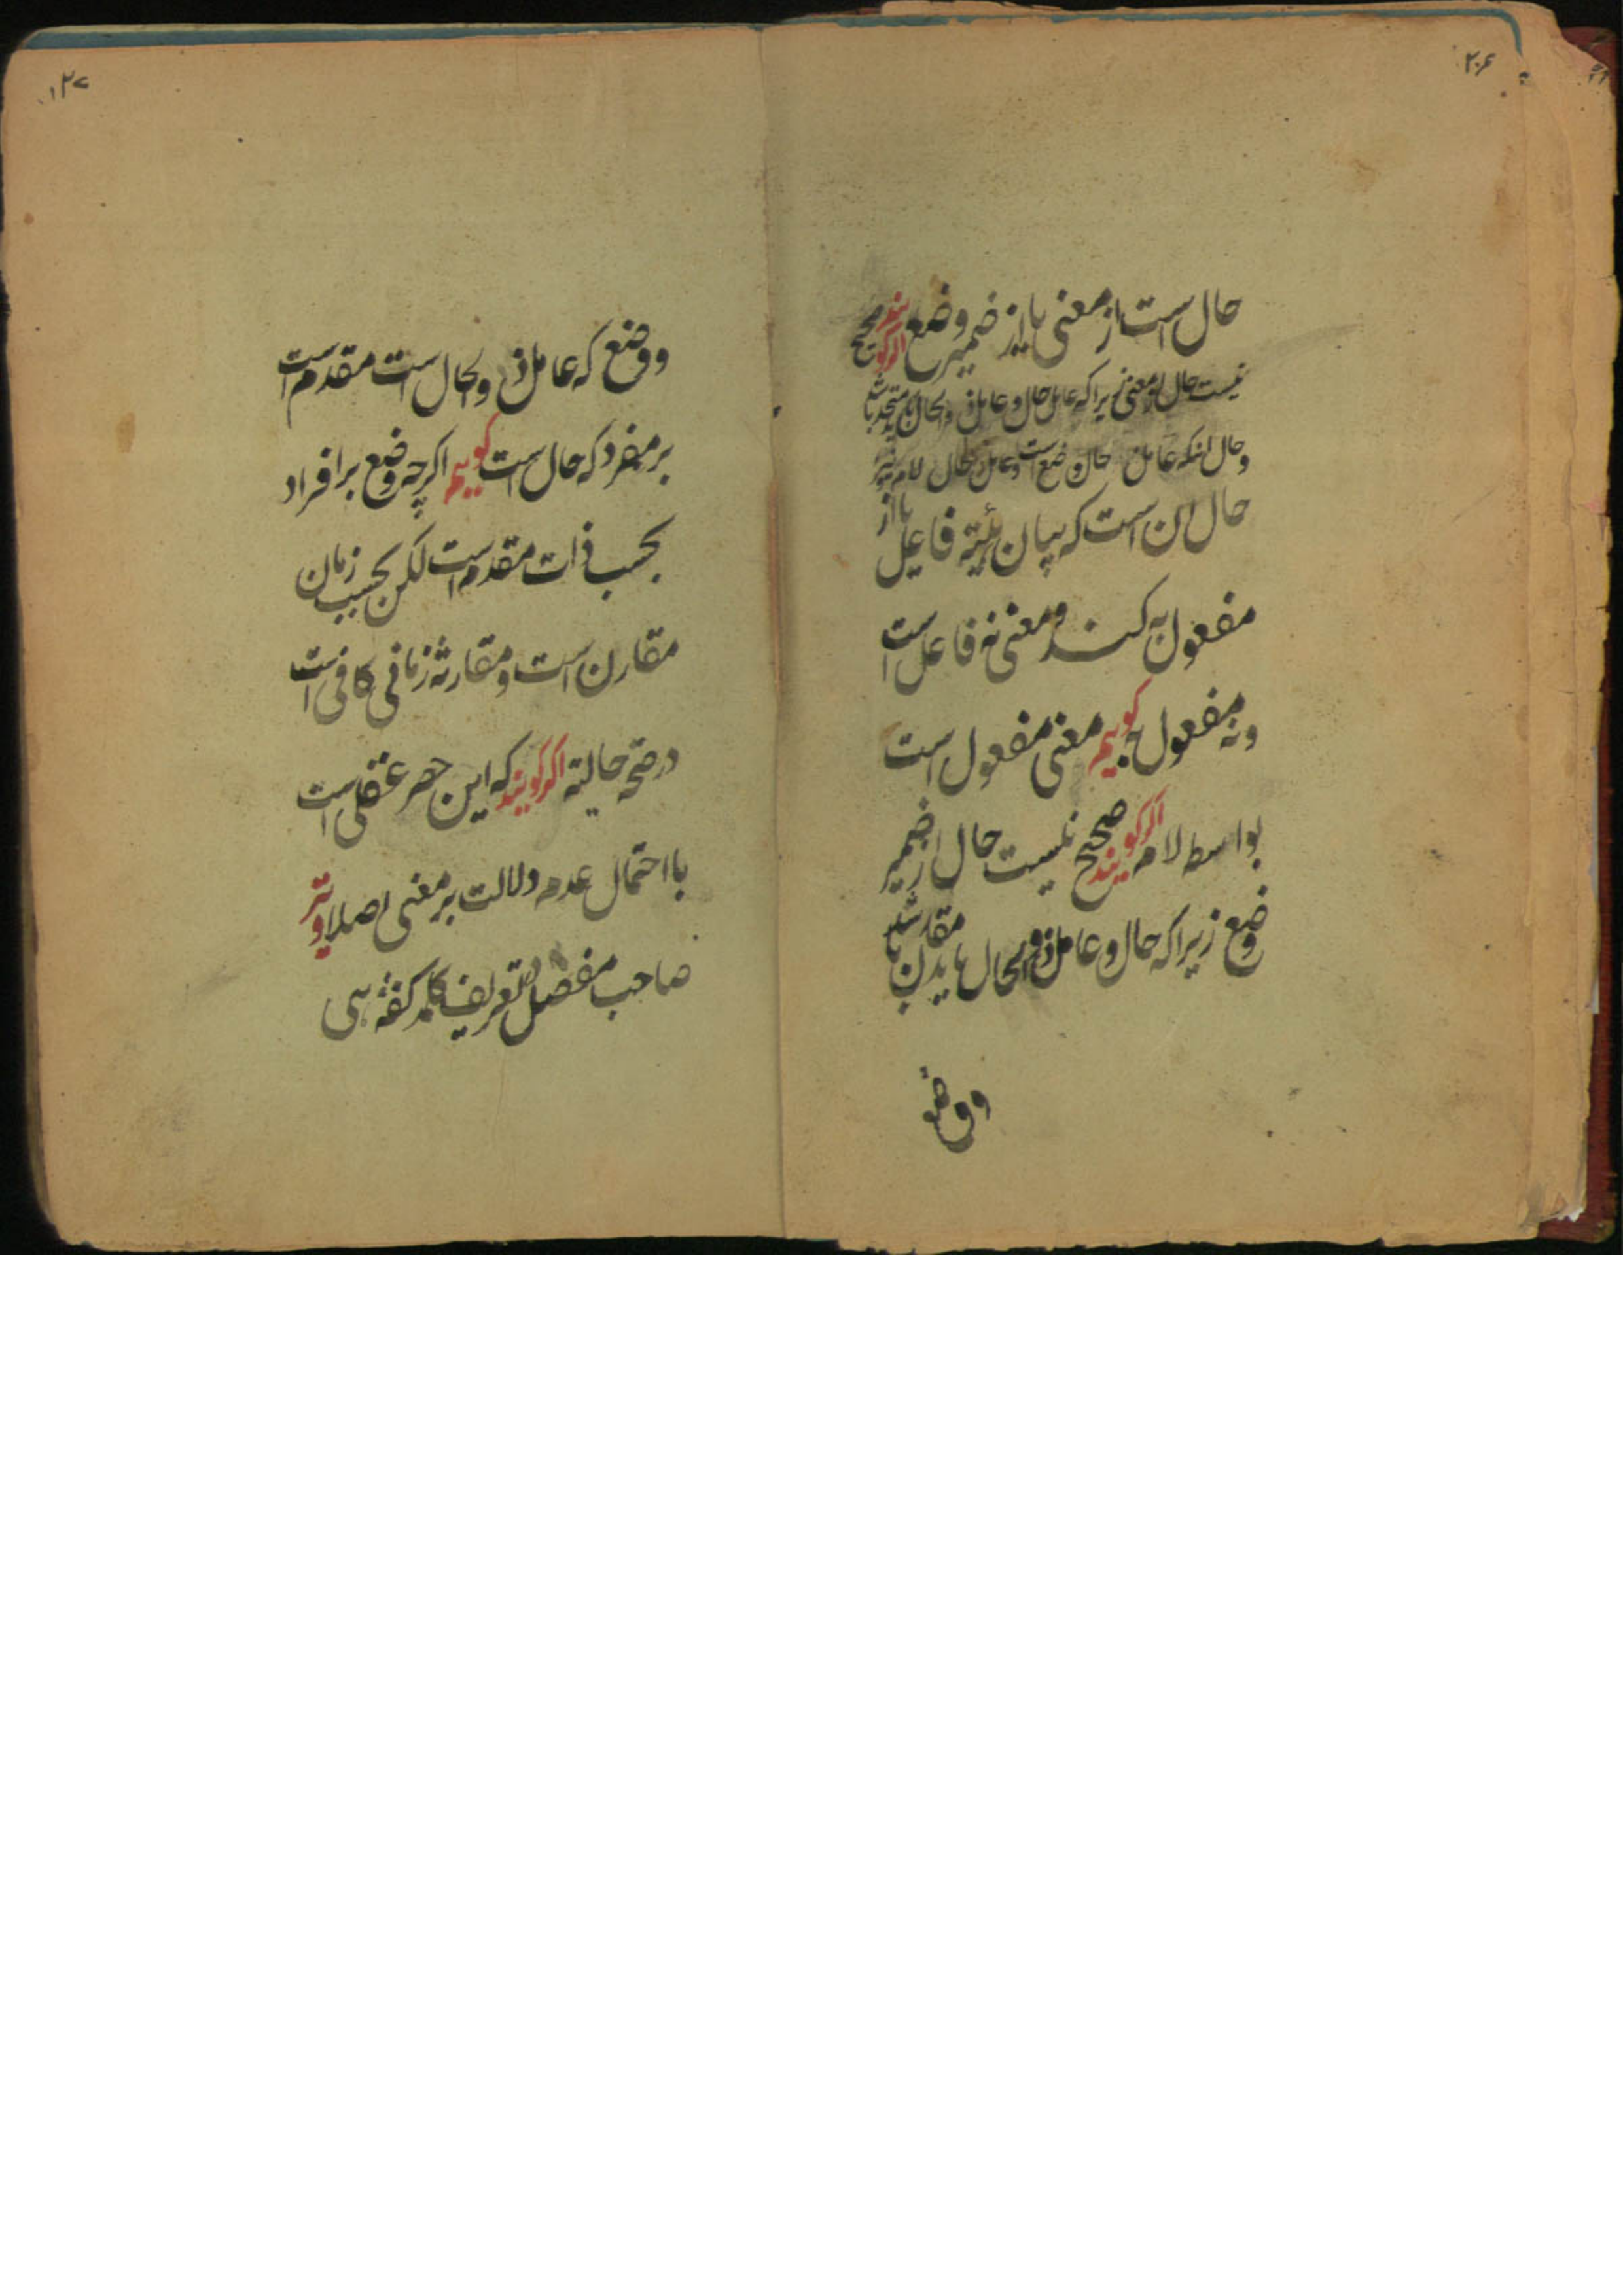 ۲۰۶
حال است از معنی یا از ضمیر وضع اگر گویند صحیح
نیست حال از معنی زیرا که عامل حال و عامل ذو الحال باید متحد باشد
و حال انکه عامل حال وضع است و عامل ذو الحال لام گوییم
حال ان است که بیان هیئته فاعل یا از
مفعول به کند و معنی نه فاعل است
و نه مفعول به گوییم معنی مفعول است
بواسطه لام اگر گویند صحیح نیست حال از ضمیر
وضع زیرا که حال و عامل ذو الحال باید مقارن باشد
و وضع
۱۲۷
و وضع که عامل ذو الحال است مقدم است
بر مفرد که حال است گوییم اگرچه وضع بر افراد
بحسب ذات مقدم است لکن بحسب زمان
مقارن است و مقارنه زمانی کافی است
در صحه حالیته اگر گویند که این حصر عقلی است
با احتمال عدم دلالت بر معنی اصلا و نیز
صاحب مفصل در تعریف کلمه گفته هی